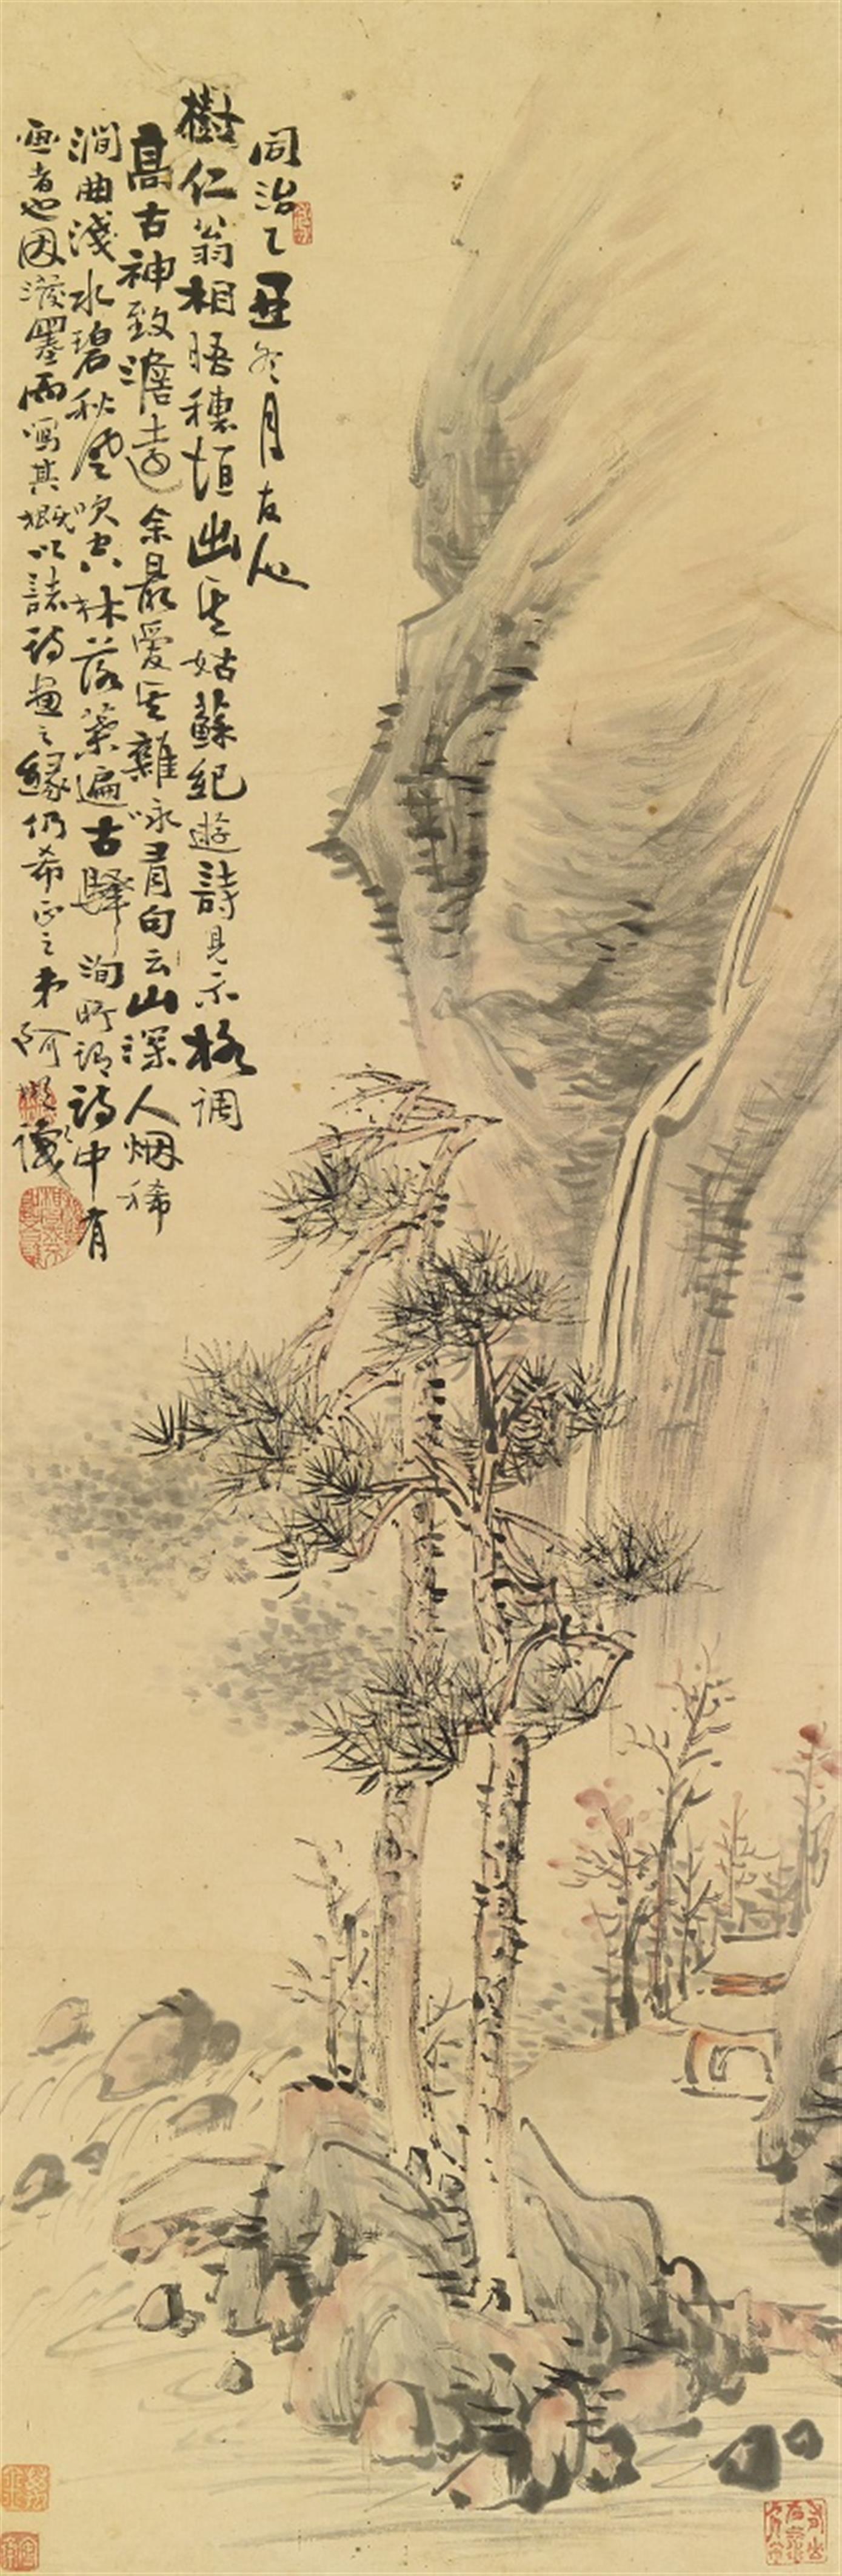 同治乙丑冬月友人
樹仁翁相晤穗垣出其姑蘇紀遊詩見示格調
高古神致澹遠余最愛其雜咏有句云山深人烟稀
澗曲淺水碧秋風吹空林落葉遍古驛洵所謂詩中有
画者也因潑墨而寫其概以誌詩畫之緣仍希正之弟阿
識